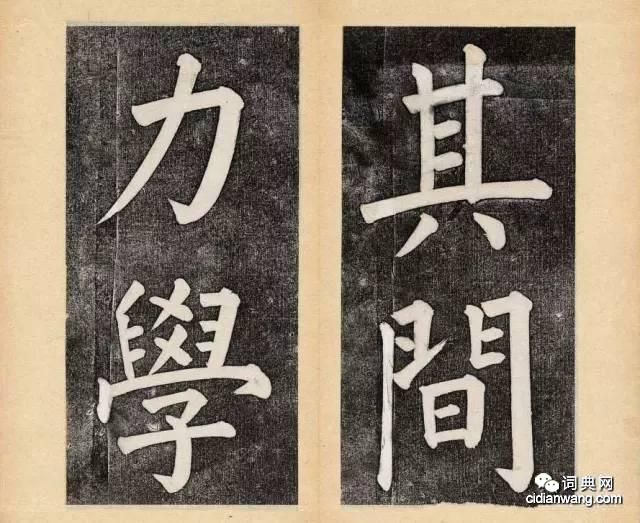 其間
力學
词典网
cidianwang.com